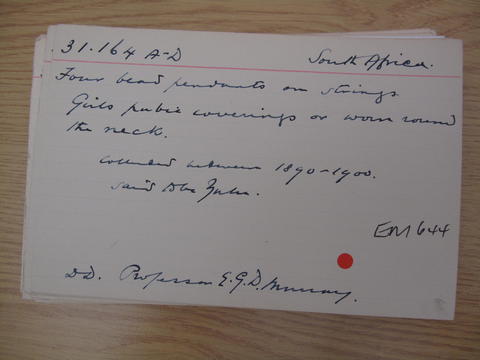 31.164 A-D South Africa.
Four bead pendants on strings
Girls pubic coverings or worn round
the neck.
collected between 1890-1900.
said to be Zulu.
EM644
DD. Professor E.G.D. Murray.